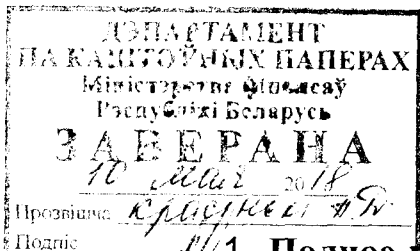 ДЭПАРТАМЕНТ
ПА КАШТОЎНЫХ ПАПЕРАХ
Міністэрства фінансаў
Рэспублікі Беларусь
ЗАВЕРАНА
10 мая 2018
Прозвішча
Подпіс 1 Полное